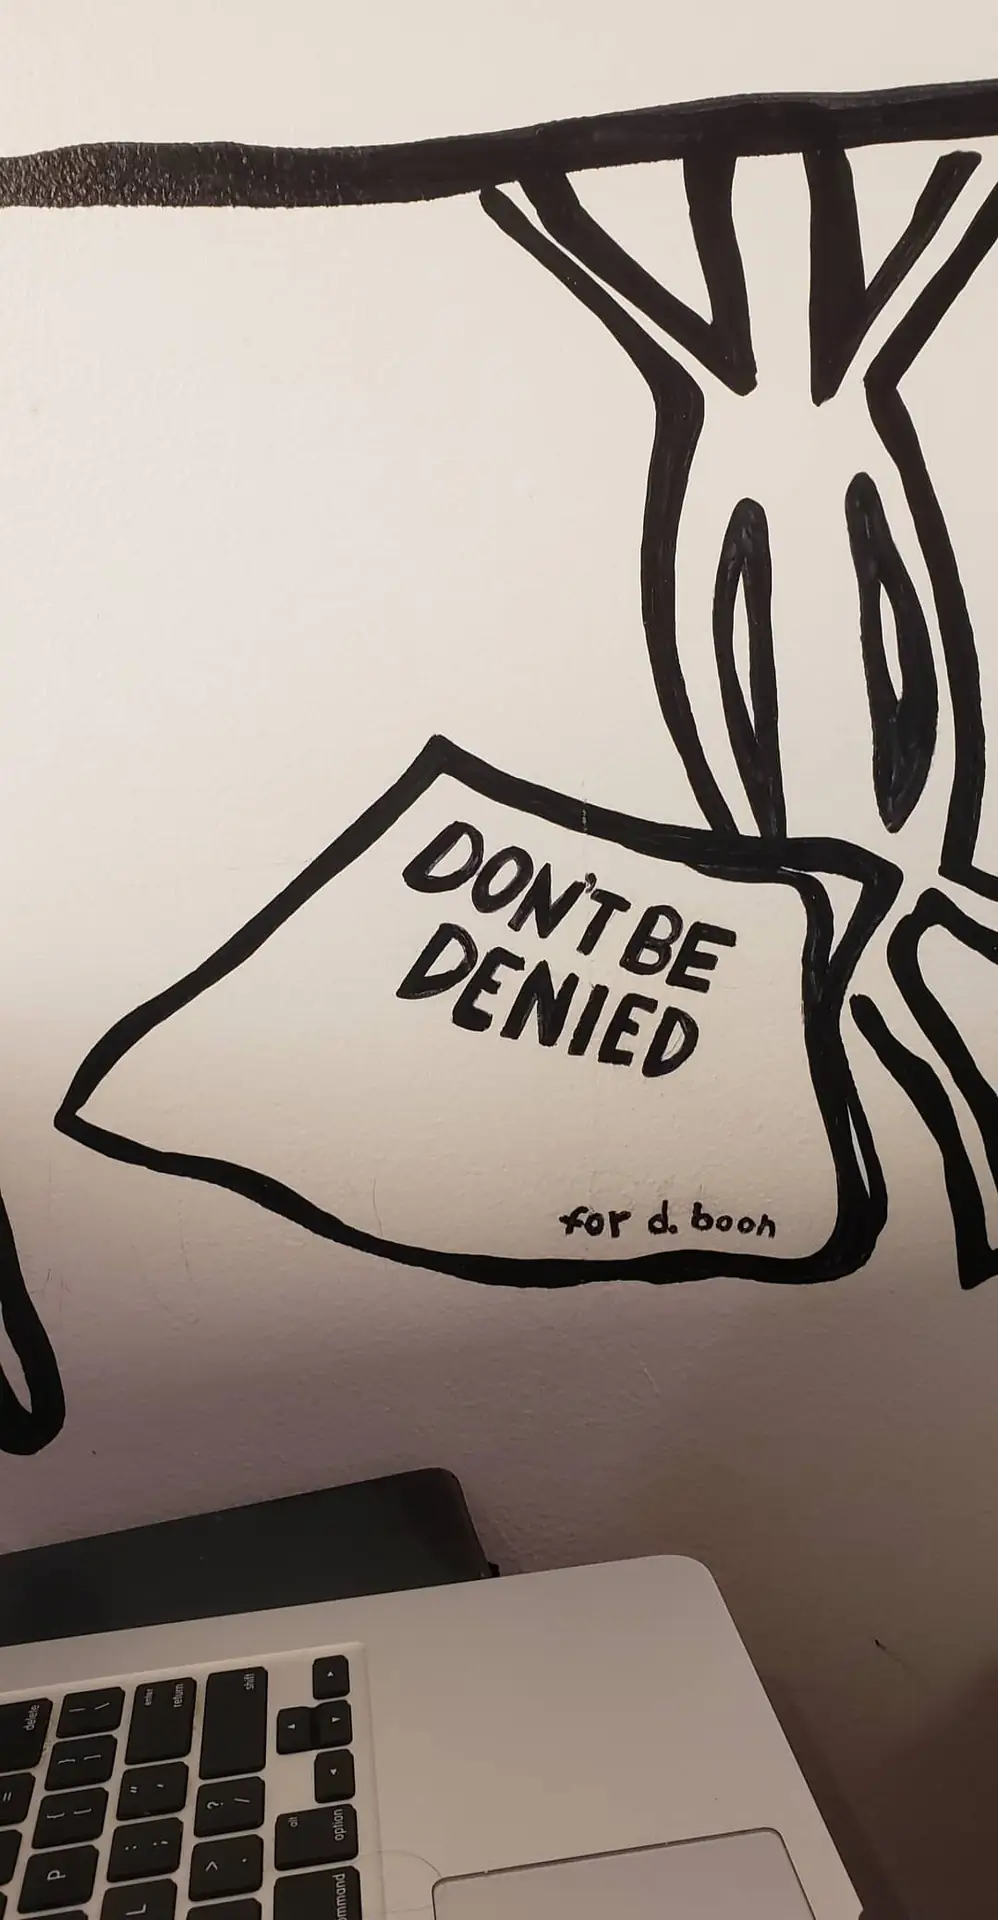 DON'T BE
DENIED
for d. boon
delete
enter
return
shift
alt
option
P
L